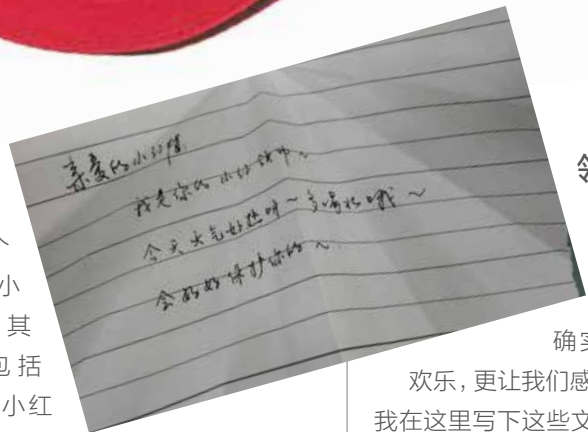 亲爱的小红帽
我是你的小红帽~
今天天气好热呀~多喝水哦~
会好好保护你的~
人
小
其
包括
小红
领
确实
欢乐，更让我们感
我在这里写下这些文